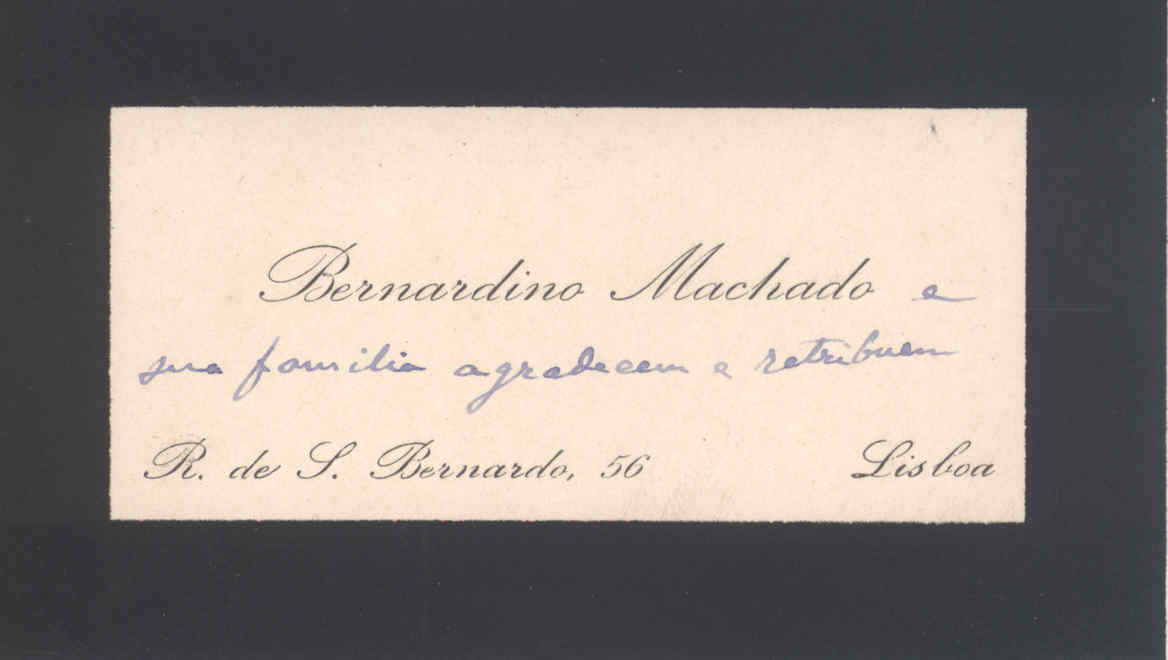 Bernardino Machado e
sua familia agradecem e retribuem
R. de S. Bernardo, 56 Lisboa